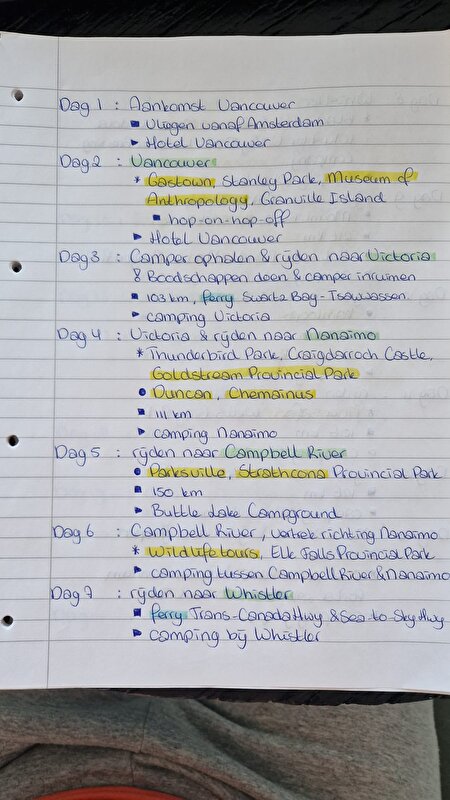 Dag 1 : Aankomst Vancouver
■ Vliegen vanaf Amsterdam
► Hotel Vancouver
Dag 2 : Vancouver
* Gastown, Stanley Park, Museum of
Anthropology, Granville Island
■ hop-on-hop-off
► Hotel Vancouver
Dag 3 : Camper ophalen & rijden naar Victoria
& Boodschappen doen & camper inruimen
■ 103 km, ferry Swartz Bay-Tsawassen
► camping Victoria
Dag 4 : Victoria & rijden naar Nanaimo
* Thunderbird Park, Craigdarroch Castle,
Goldstream Provincial Park
● Duncan, Chemainus
■ 111 km
► camping Nanaimo
Dag 5 : rijden naar Campbell River
● Parksville, Strathcona Provincial Park
■ 150 km
► Buttle Lake Campground
Dag 6 : Campbell River, vertrek richting Nanaimo
* Wildlife tours, Elk Falls Provincial Park
► camping tussen Campbell River & Nanaimo
Dag 7 : rijden naar Whistler
■ ferry Trans-Canada Hwy & Sea-to-Sky Hwy
► camping bij Whistler